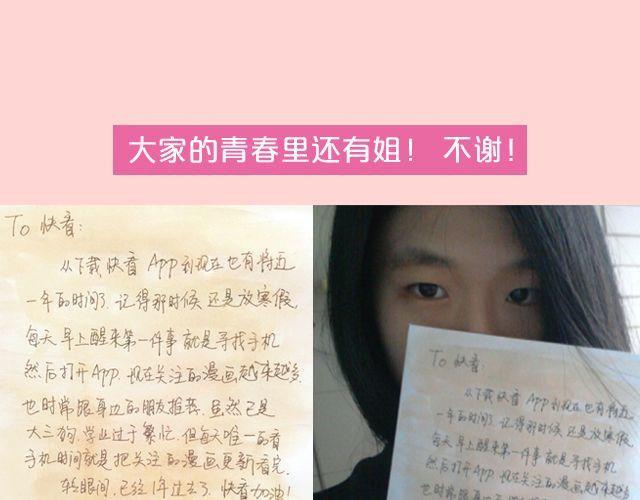 大家的青春里还有姐！ 不谢！
To 快看：
从下载快看 App 到现在也有将近
一年的时间了. 记得那时候 还是放寒假,
每天 早上醒来第一件事 就是寻找手机
然后打开App. 现在关注的漫画越来越多.
也时常跟身边的朋友推荐. 虽然已是
大三狗. 学业过于繁忙. 但每天唯一的看
手机时间就是把关注的漫画更新看完.
转眼间. 已经1年过去了. 快看加油！
To 快看：
从下载快看 App 到现在也有将近
一年的时间了. 记得那时候 还是放寒假
每天 早上醒来第一件事 就是寻找手机
然后打开App. 现在关注的漫画越来越多
也时常跟身边的朋友推荐